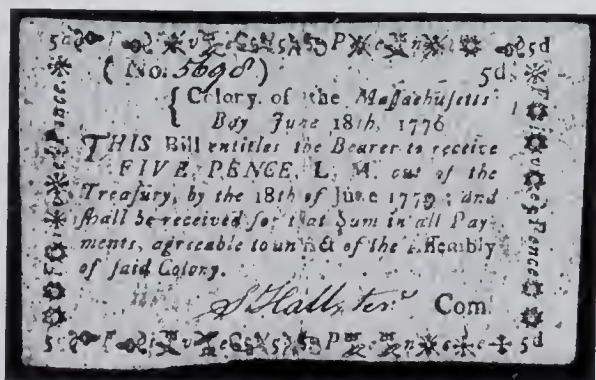 5d F i v e P e n c e 5d
(No. 5698) 5d.
Colony of the Massachusetts
Bay June 18th, 1776
THIS Bill entitles the Bearer to receive
FIVE PENCE, L. M. out of the
Treasury, by the 18th of June 1779; and
shall be received for that Sum in all Pay-
ments, agreeable to an Act of the Assembly
of said Colony.
Com.
5d F i v e P e n c e 5d
Five Pence.
Five Pence